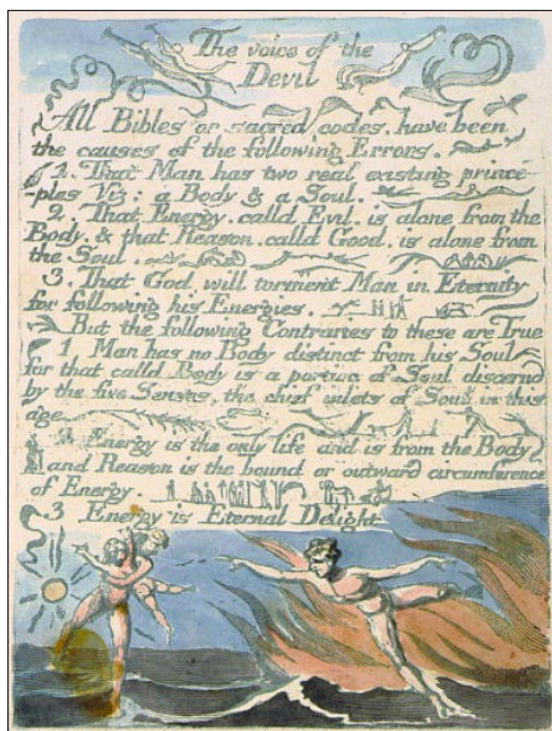 The voice of the
Devil
All Bibles or sacred codes. have been
the causes of the following Errors.
1. That Man has two real existing prince-
-ples Viz: a Body & a Soul.
2. That Energy. calld Evil. is alone from the
Body. & that Reason. calld Good. is alone from
the Soul.
3. That God will torment Man in Eternity
for following his Energies.
But the following Contraries to these are True
1 Man has no Body distinct from his Soul
for that calld Body is a portion of Soul discernd
by the five Senses. the chief inlets of Soul in this
age
2 Energy is the only life and is from the Body
and Reason is the bound or outward circumference
of Energy.
3 Energy is Eternal Delight